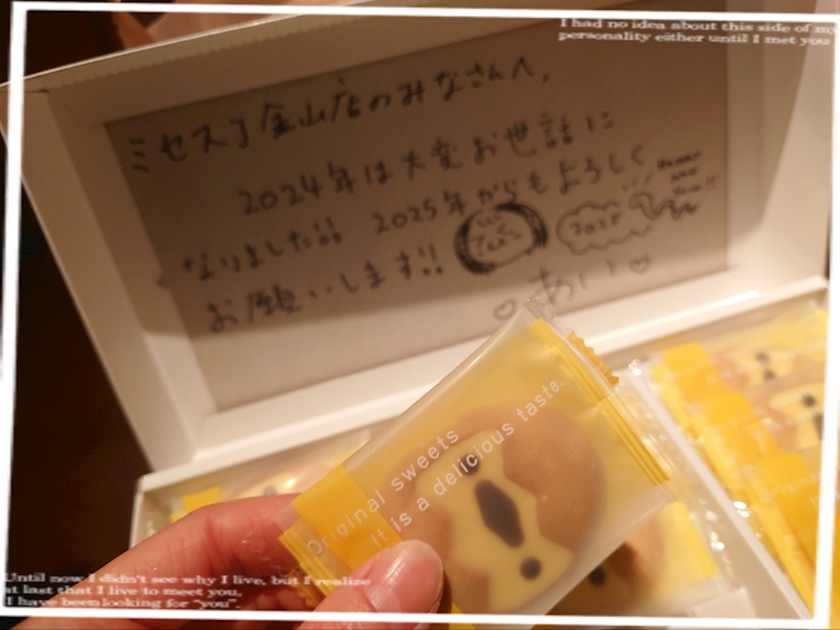 I had no idea about this side of my
personality either until I met you
ミセスJ金山店のみなさんへ、
2024年は大変お世話に
なりました!! 2025年からもよろしく
お願いします!!
2025
♡あい♡
Original sweets
It is a delicious taste.
Until now I didn't see why I live, but I realize
at last that I live to meet you,
I have been looking for "you".